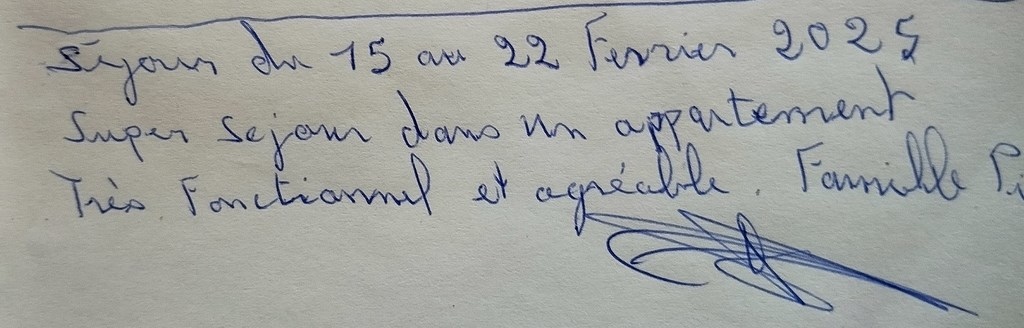 Séjour du 15 au 22 Fevrier 2025
Super Sejour dans un appartement
Très Fonctionnel et agréable. Famille